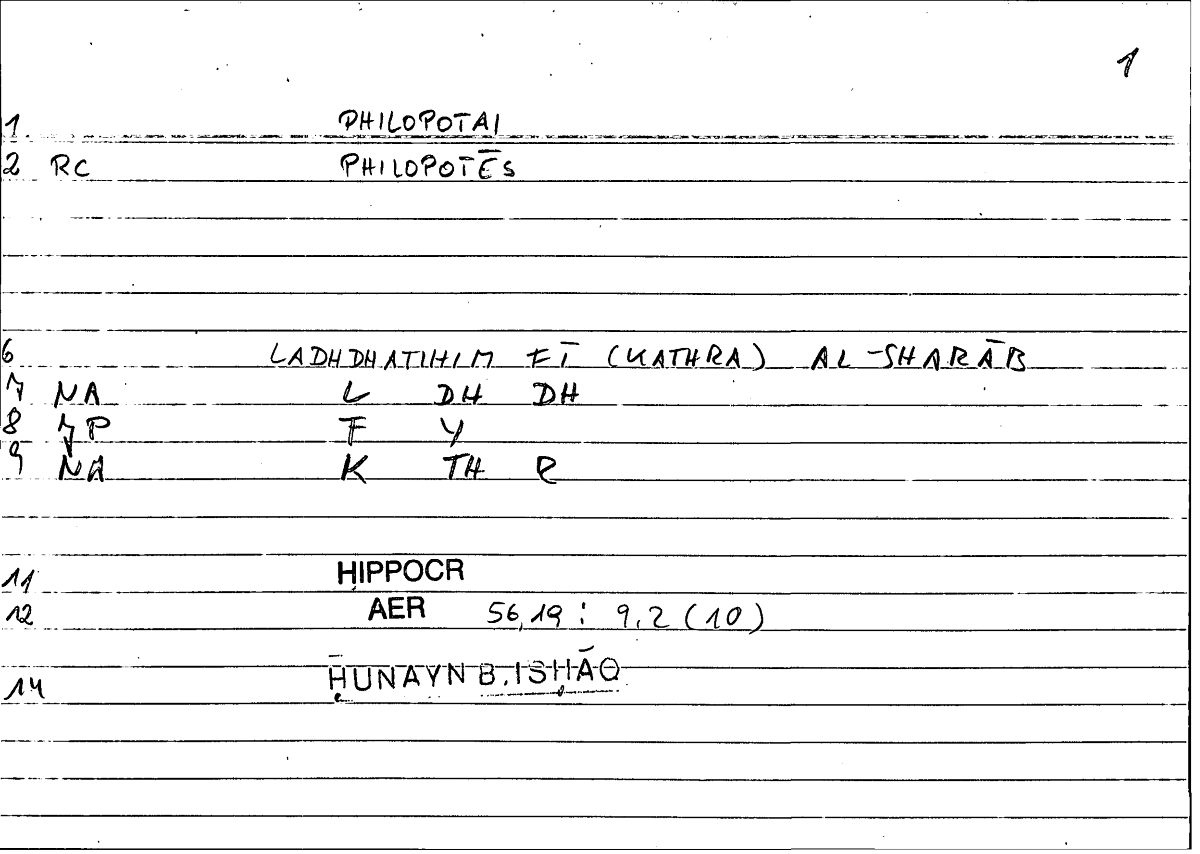 1
1 PHILOPOTAI
2 RC PHILOPOTĒS
6 LADHDHATIHIM FĪ (KATHRA) AL-SHARĀB
7 NA L DH DH
8 7P F Y
9 NA K TH R
11 ḤIPPOCR
12 AER 56,19 : 9,2 (10)
14 ḤUNAYN B. ISḤĀQ